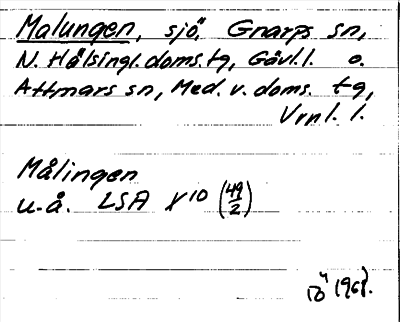 Malungen, sjö, Gnarps sn,
N. Hälsingl. doms. tg, Gävl. l. o.
Attmars sn, Med. v. doms. tg,
Vrnl. l.
Målingen
u.å. LSA X10 (49/2)
1961.